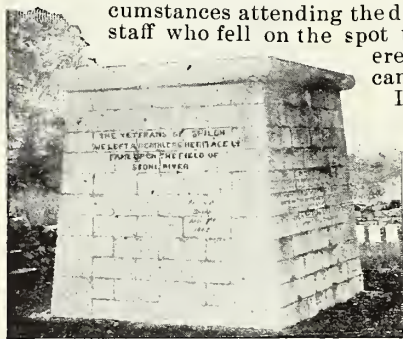 cumstances attending the d
staff who fell on the spot
ere
can
THE VETERANS OF SHILOH
LEFT A DEATHLESS HERITAGE OF
FAME UPON THE FIELD OF
STONE RIVER